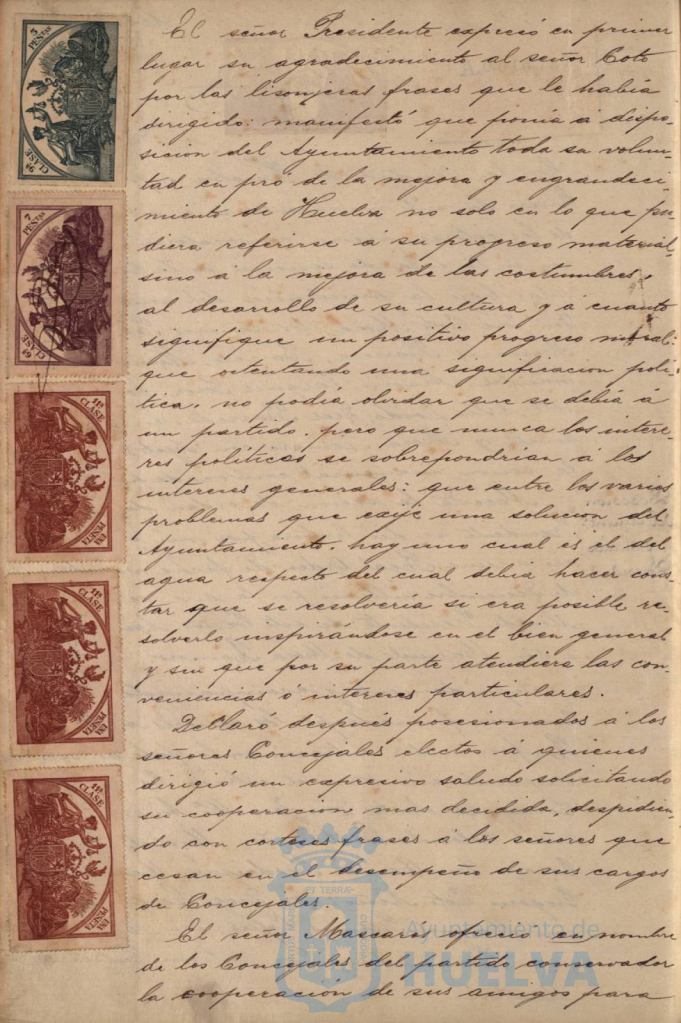 El señor Presidente expresó en primer
lugar su agradecimiento al señor Coto
por las lisonjeras frases que le había
dirigido: manifestó que ponía á dispo-
sicion del Ayuntamiento toda su volun-
tad en pró de la mejora y engrandeci-
miento de Huelva no solo en lo que pu-
diera referirse á su progreso material,
sino á la mejora de las costumbres,
al desarrollo de su cultura y á cuanto
signifique un positivo progreso moral:
que ostentando una significacion polí-
tica, no podía olvidar que se debía á
un partido, pero que nunca los intere-
res políticos se sobrepondrian á los
intereses generales: que entre los varios
problemas que exije una solucion del
Ayuntamiento, hay uno cual es el del
agua respecto del cual debia hacer cons-
tar que se resolvería si era posible re-
solverlo inspirándose en el bien general
y sin que por su parte atendiera las con-
veniencias ó intereses particulares.
Declaró después posesionados á los
señores Concejales electos á quienes
dirigió un expresivo saludo solicitando
su cooperacion mas decidida, despidien-
do con corteses frases á los señores que
cesan en el desempeño de sus cargos
de Concejales.
El señor Mascarós ofreció en nombre
de los Concejales del partido conservador
la cooperación de sus amigos para
3 PESETAS
CLASE 9ª
7 PESETAS
CLASE
11ª CLASE
UNA PESETA
11ª CLASE
UNA PESETA
11ª CLASE
UNA PESETA
ET TERRÆ
Ayuntamiento de
HUELVA